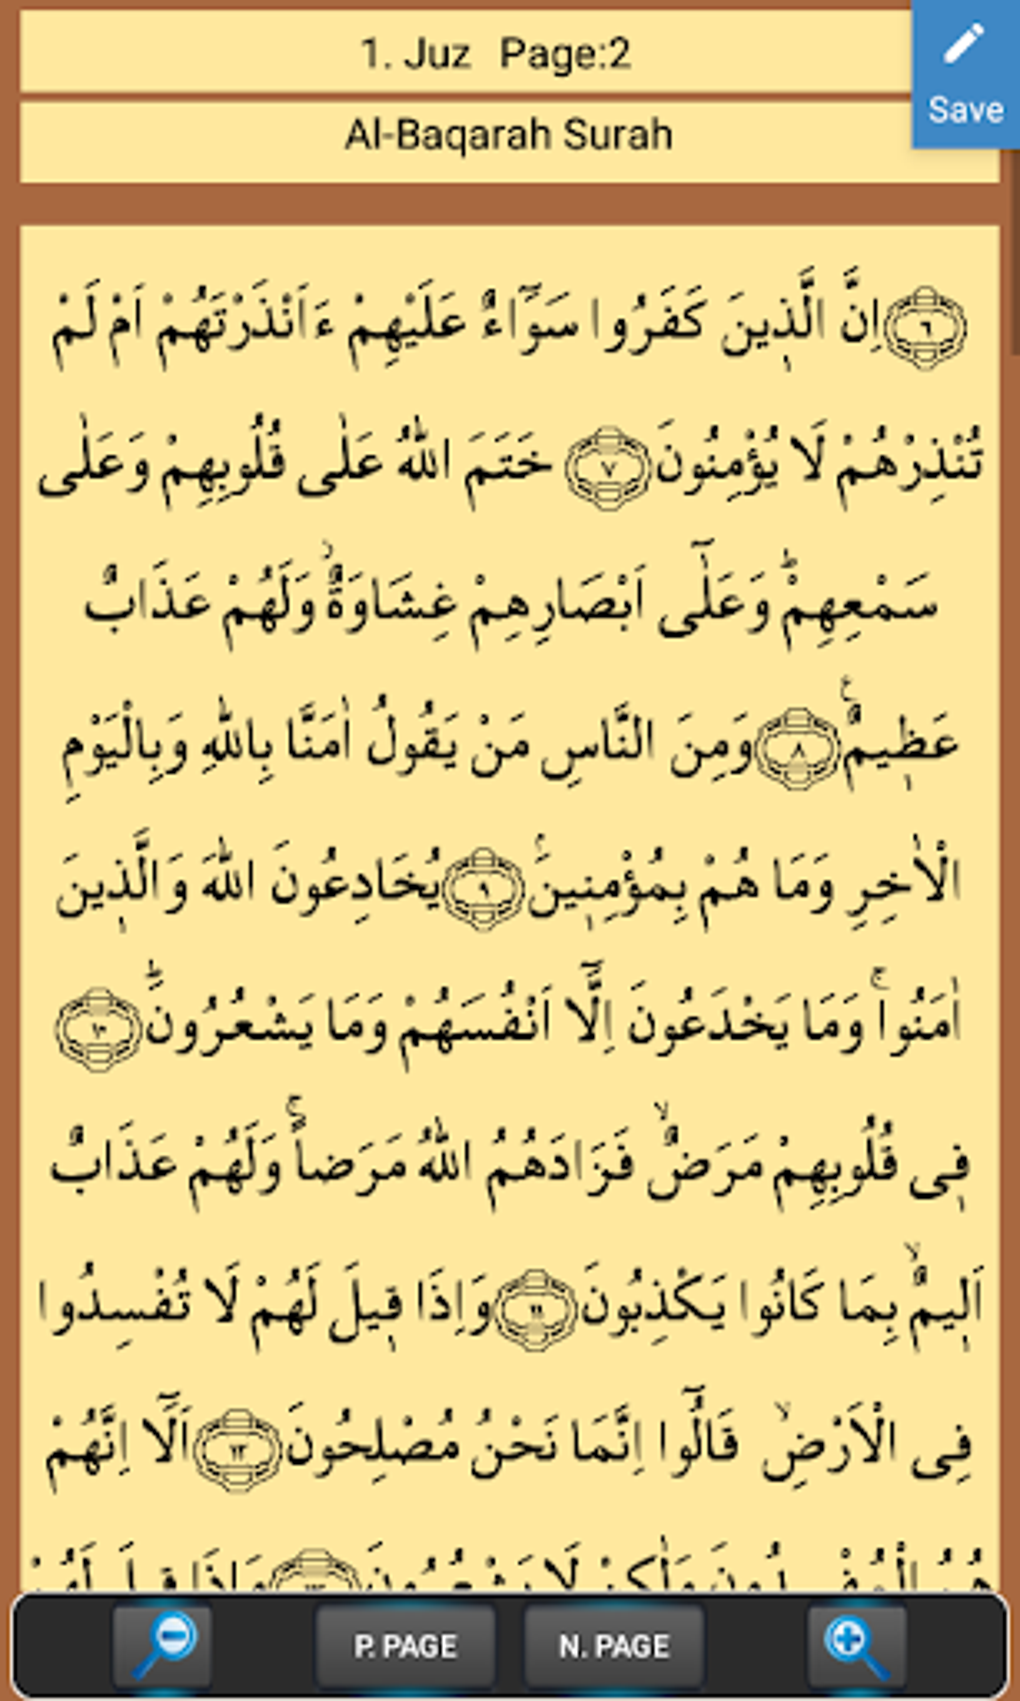 1. Juz Page:2
Save
Al-Baqarah Surah
﴿٦﴾ اِنَّ الَّذٖينَ كَفَرُوا سَوَٓاءٌ عَلَيْهِمْ ءَاَنْذَرْتَهُمْ اَمْ لَمْ
تُنْذِرْهُمْ لَا يُؤْمِنُونَ ﴿٧﴾ خَتَمَ اللّٰهُ عَلٰى قُلُوبِهِمْ وَعَلٰى
سَمْعِهِمْؕ وَعَلٰٓى اَبْصَارِهِمْ غِشَاوَةٌؗ وَلَهُمْ عَذَابٌ
عَظٖيمٌࣖ ﴿٨﴾ وَمِنَ النَّاسِ مَنْ يَقُولُ اٰمَنَّا بِاللّٰهِ وَبِالْيَوْمِ
الْاٰخِرِ وَمَا هُمْ بِمُؤْمِنٖينَۘ ﴿٩﴾ يُخَادِعُونَ اللّٰهَ وَالَّذٖينَ
اٰمَنُواۚ وَمَا يَخْدَعُونَ اِلَّٓا اَنْفُسَهُمْ وَمَا يَشْعُرُونَؕ ﴿١٠﴾
فٖى قُلُوبِهِمْ مَرَضٌۙ فَزَادَهُمُ اللّٰهُ مَرَضاًۚ وَلَهُمْ عَذَابٌ
اَلٖيمٌۙ بِمَا كَانُوا يَكْذِبُونَ ﴿١١﴾ وَاِذَا قٖيلَ لَهُمْ لَا تُفْسِدُوا
فِى الْاَرْضِۙ قَالُٓوا اِنَّمَا نَحْنُ مُصْلِحُونَ ﴿١٢﴾ اَلَٓا اِنَّهُمْ
هُمُ الْمُفْسِدُونَ وَلٰكِنْ لَا يَشْعُرُونَ ﴿١٣﴾ وَاِذَا قٖيلَ لَهُمْ
P. PAGE N. PAGE